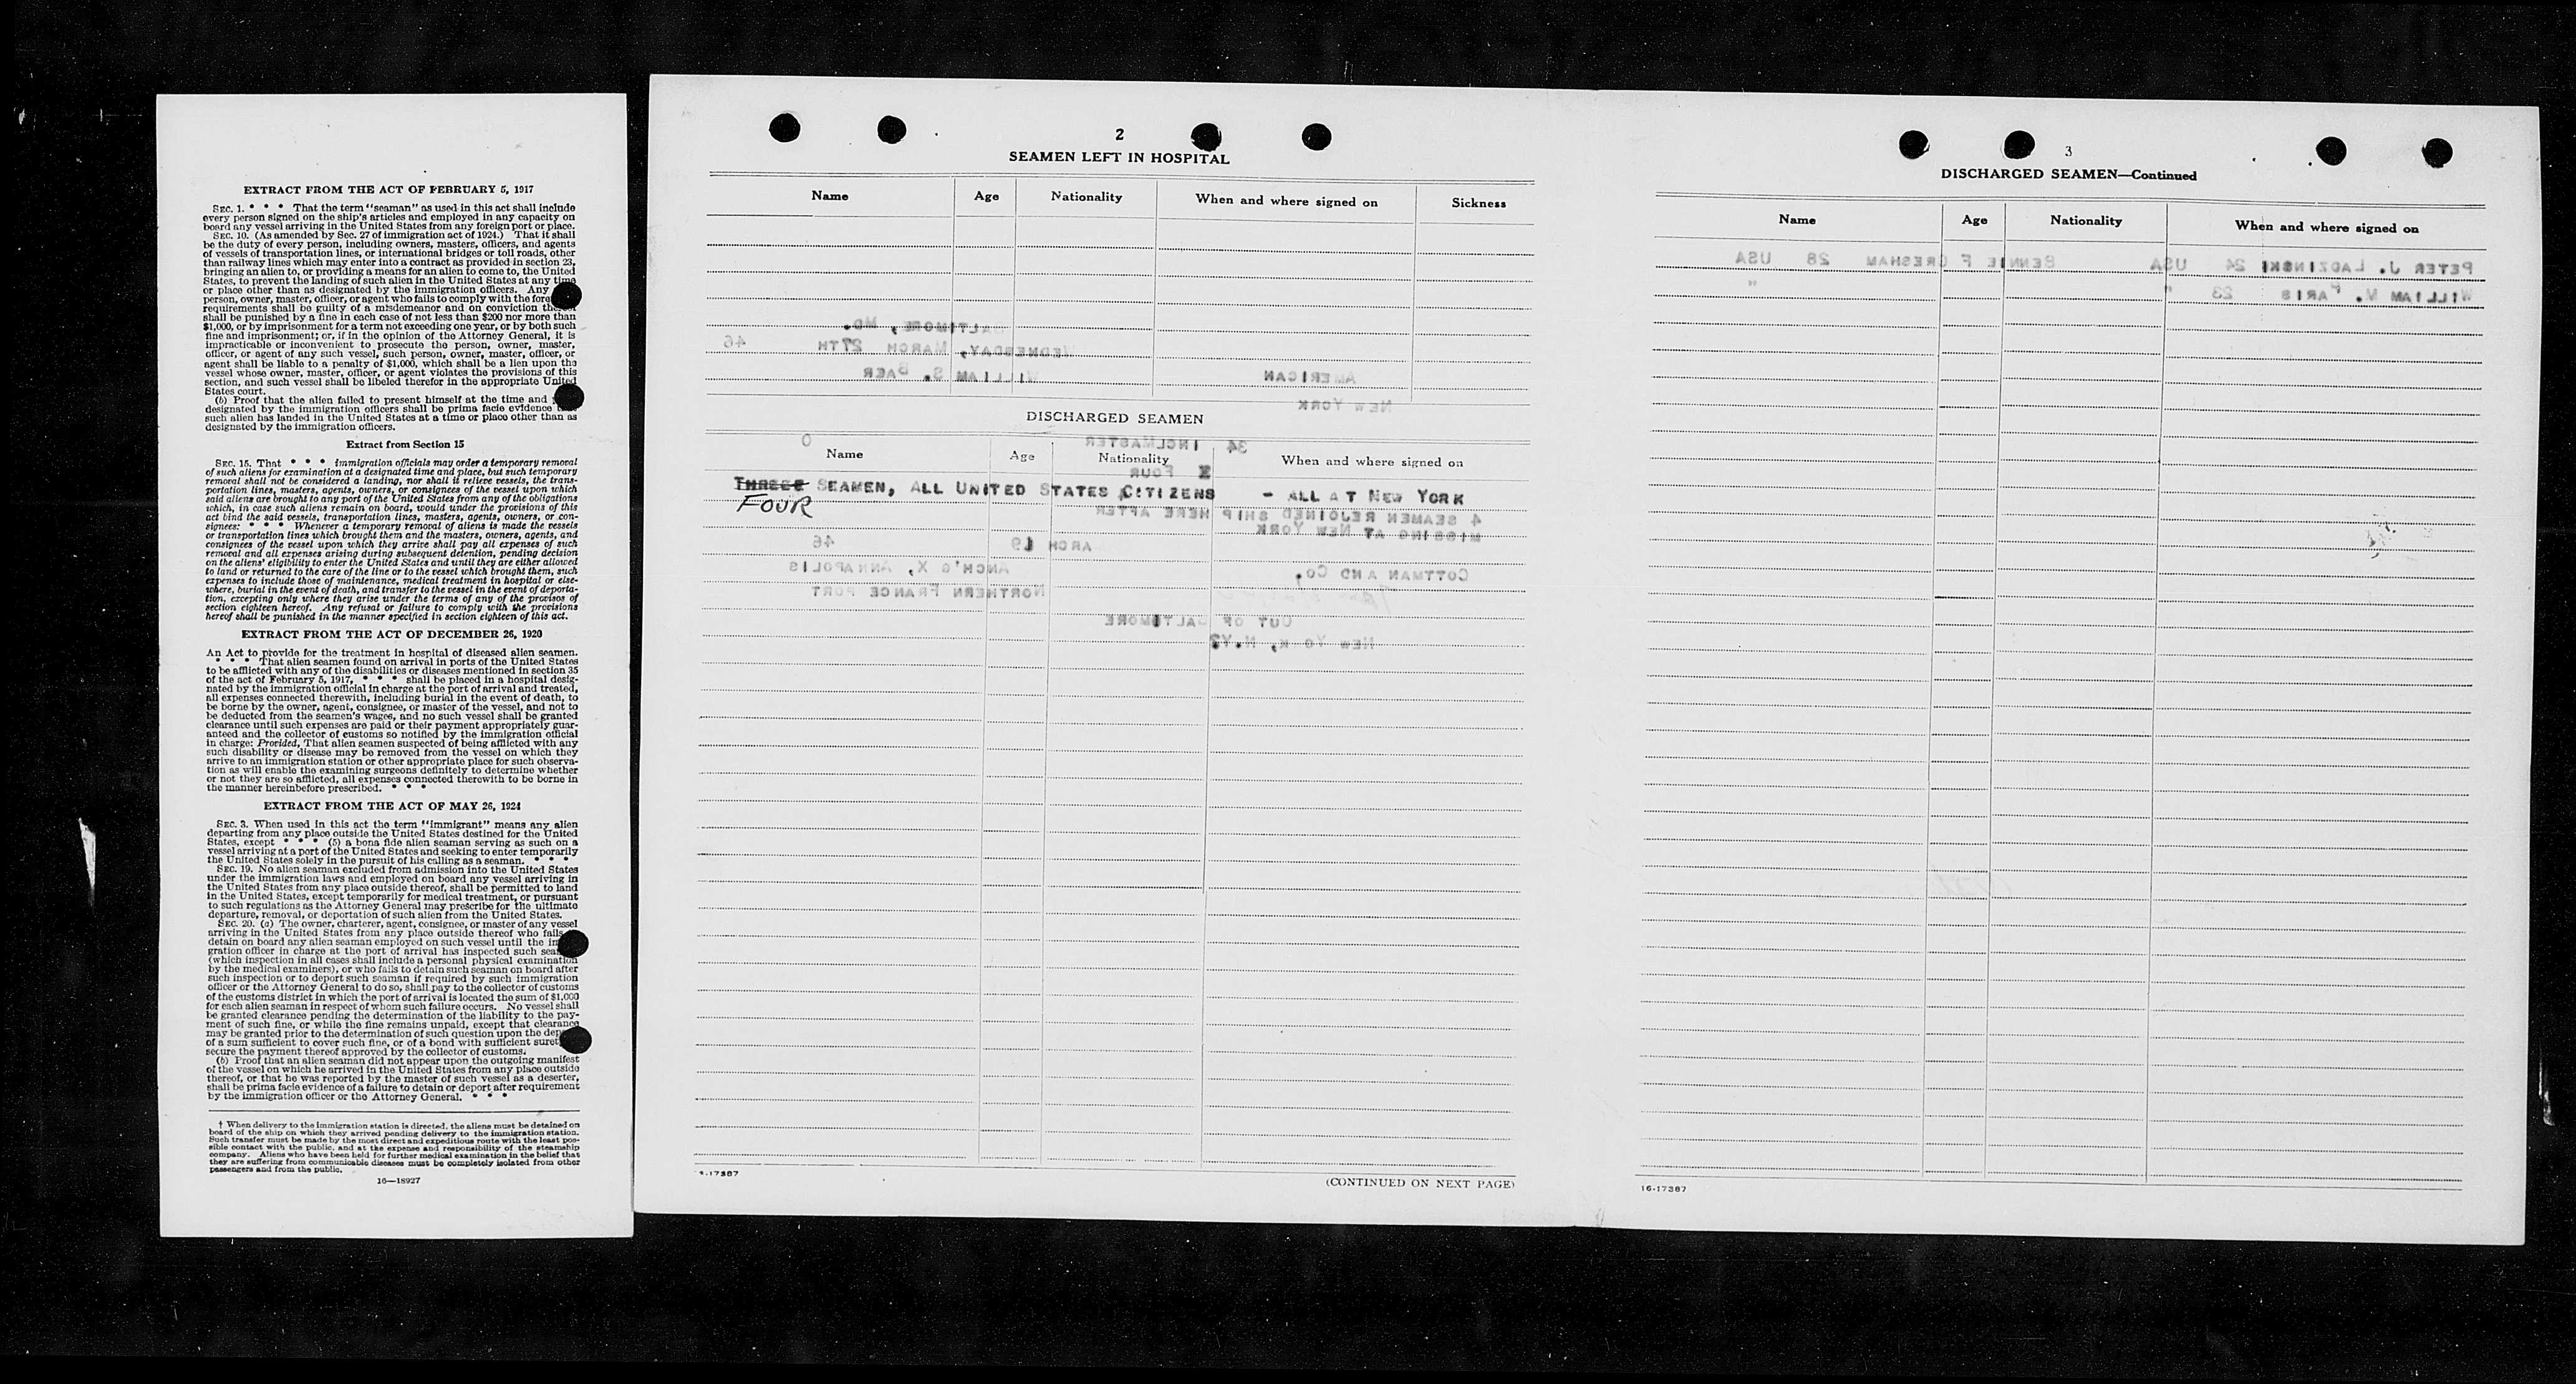 EXTRACT FROM THE ACT OF FEBRUARY 5, 1917
SEC. 1. * * * That the term "seaman" as used in this act shall include
every person signed on the ship's articles and employed in any capacity on
board any vessel arriving in the United States from any foreign port or place.
SEC. 10. (As amended by Sec. 27 of immigration act of 1924.) That it shall
be the duty of every person, including owners, masters, officers, and agents
of vessels of transportation lines, or international bridges or toll roads, other
than railway lines which may enter into a contract as provided in section 23,
bringing an alien to, or providing a means for an alien to come to, the United
States, to prevent the landing of such alien in the United States at any time
or place other than as designated by the immigration officers. Any
person, owner, master, officer, or agent who fails to comply with the fore
requirements shall be guilty of a misdemeanor and on conviction thereof
shall be punished by a fine in each case of not less than $200 nor more than
$1,000, or by imprisonment for a term not exceeding one year, or by both such
fine and imprisonment; or, if in the opinion of the Attorney General, it is
impracticable or inconvenient to prosecute the person, owner, master,
officer, or agent of any such vessel, such person, owner, master, officer, or
agent shall be liable to a penalty of $1,000, which shall be a lien upon the
vessel whose owner, master, officer, or agent violates the provisions of this
section, and such vessel shall be libeled therefor in the appropriate United
States court.
(b) Proof that the alien failed to present himself at the time and
designated by the immigration officers shall be prima facie evidence
such alien has landed in the United States at a time or place other than as
designated by the immigration officers.
Extract from Section 15
SEC. 15. That * * * immigration officials may order a temporary removal
of such aliens for examination at a designated time and place, but such temporary
removal shall not be considered a landing, nor shall it relieve vessels, the trans-
portation lines, masters, agents, owners, or consignees of the vessel upon which
said aliens are brought to any port of the United States from any of the obligations
which, in case such aliens remain on board, would under the provisions of this
act bind the said vessels, transportation lines, masters, agents, owners, or con-
signees: * * * Whenever a temporary removal of aliens is made the vessels
or transportation lines which brought them and the masters, owners, agents, and
consignees of the vessel upon which they arrive shall pay all expenses of such
removal and all expenses arising during subsequent detention, pending decision
on the aliens' eligibility to enter the United States and until they are either allowed
to land or returned to the care of the line or to the vessel which brought them, such
expenses to include those of maintenance, medical treatment in hospital or else-
where, burial in the event of death, and transfer to the vessel in the event of deporta-
tion, excepting only where they arise under the terms of any of the provisos of
section eighteen hereof. Any refusal or failure to comply with the provisions
hereof shall be punished in the manner specified in section eighteen of this act.
EXTRACT FROM THE ACT OF DECEMBER 26, 1920
An Act to provide for the treatment in hospital of diseased alien seamen.
* * * That alien seamen found on arrival in ports of the United States
to be afflicted with any of the disabilities or diseases mentioned in section 35
of the act of February 5, 1917, * * * shall be placed in a hospital desig-
nated by the immigration official in charge at the port of arrival and treated,
all expenses connected therewith, including burial in the event of death, to
be borne by the owner, agent, consignee, or master of the vessel, and not to
be deducted from the seamen's wages, and no such vessel shall be granted
clearance until such expenses are paid or their payment appropriately guar-
anteed and the collector of customs so notified by the immigration official
in charge: Provided, That alien seamen suspected of being afflicted with any
such disability or disease may be removed from the vessel on which they
arrive to an immigration station or other appropriate place for such observa-
tion as will enable the examining surgeons definitely to determine whether
or not they are so afflicted, all expenses connected therewith to be borne in
the manner hereinbefore prescribed. * * *
EXTRACT FROM THE ACT OF MAY 26, 1924
SEC. 3. When used in this act the term "immigrant" means any alien
departing from any place outside the United States destined for the United
States, except * * * (5) a bona fide alien seaman serving as such on a
vessel arriving at a port of the United States and seeking to enter temporarily
the United States solely in the pursuit of his calling as a seaman. * * *
SEC. 19. No alien seaman excluded from admission into the United States
under the immigration laws and employed on board any vessel arriving in
the United States from any place outside thereof, shall be permitted to land
in the United States, except temporarily for medical treatment, or pursuant
to such regulations as the Attorney General may prescribe for the ultimate
departure, removal, or deportation of such alien from the United States.
SEC. 20. (a) The owner, charterer, agent, consignee, or master of any vessel
arriving in the United States from any place outside thereof who fails
detain on board any alien seaman employed on such vessel until the im
gration officer in charge at the port of arrival has inspected such sea
(which inspection in all cases shall include a personal physical examination
by the medical examiners), or who fails to detain such seaman on board after
such inspection or to deport such seaman if required by such immigration
officer or the Attorney General to do so, shall pay to the collector of customs
of the customs district in which the port of arrival is located the sum of $1,000
for each alien seaman in respect of whom such failure occurs. No vessel shall
be granted clearance pending the determination of the liability to the pay-
ment of such fine, or while the fine remains unpaid, except that clearance
may be granted prior to the determination of such question upon the dep
of a sum sufficient to cover such fine, or of a bond with sufficient suret
secure the payment thereof approved by the collector of customs.
(b) Proof that an alien seaman did not appear upon the outgoing manifest
of the vessel on which he arrived in the United States from any place outside
thereof, or that he was reported by the master of such vessel as a deserter,
shall be prima facie evidence of a failure to detain or deport after requirement
by the immigration officer or the Attorney General. * * *
† When delivery to the immigration station is directed, the aliens must be detained on
board of the ship on which they arrived pending delivery to the immigration station.
Such transfer must be made by the most direct and expeditious route with the least pos-
sible contact with the public, and at the expense and responsibility of the steamship
company. Aliens who have been held for further medical examination in the belief that
they are suffering from communicable diseases must be completely isolated from other
passengers and from the public.
16—18927
2
SEAMEN LEFT IN HOSPITAL
Name Age Nationality When and where signed on Sickness
BALTIMORE, MD.
WEDNESDAY, MARCH 27TH 46
WILLIAM S. BAER AMERICAN
NEW YORK
DISCHARGED SEAMEN
34 INCLMASTER 0
Name Age Nationality When and where signed on
X FOUR
THREEE SEAMEN, ALL UNITED STATES CITIZENS - ALL AT NEW YORK
FOUR
4 SEAMEN REJOINED SHIP HERE AFTER
MISSING AT NEW YORK
ARCH 19 46
COTTMAN AND CO. ANCH'G X, ANNAPOLIS
NORTHERN FRANCE PORT
OUT OF BALTIMORE
NEW YO K, N.Y?
-17387
(CONTINUED ON NEXT PAGE)
3
DISCHARGED SEAMEN—Continued
Name Age Nationality When and where signed on
PETER J. LADZINSKI 24 USA BENNIE F GRESHAM 28 USA
WILLIAM M. PARIS 23 " "
16-17387